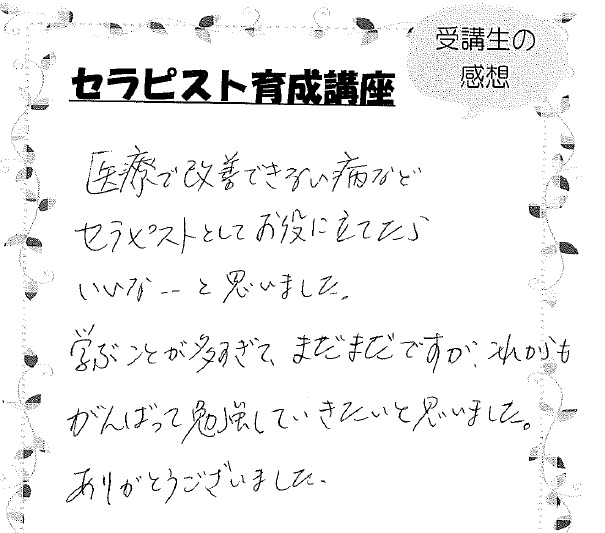 受講生の
感想
セラピスト育成講座
医療で改善できない病など
セラピストとしてお役に立てたら
いいな--と思いました。
学ぶことが多すぎて、まだまだですが、これからも
がんばって勉強していきたいと思いました。
ありがとうございました。